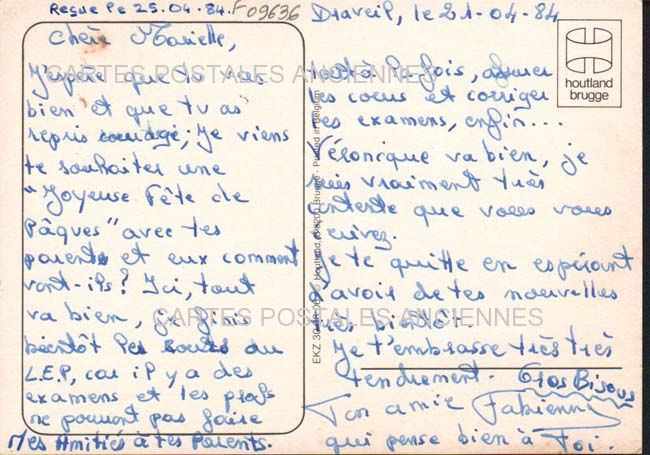 Reçue le 25.04.84. F09636
Chère Marielle,
J'espère que tu vas
bien et que tu as
repris courage; Je viens
te souhaiter une
"Joyeuse Fête de
Pâques" avec tes
parents et eux comment
vont-ils? Ici, tout
va bien, je finis
bientôt les cours du
L.E.P, car il y a des
examens et les profs
ne pourront pas faire
Mes Amitiés à tes Parents.
Draveil, le 21-04-84
tout à la fois, assurer
les cours et corriger
les examens, enfin...
Véronique va bien, je
suis vraiment très
contente que vous vous
écrivez.
Je te quitte en espérant
d'avoir de tes nouvelles
très bientôt.
Je t'embrasse très très
tendrement. Gros Bisous
Ton amie Fabienne
qui pense bien à Toi.
houtland
brugge
CARTES POSTALES ANCIENNES
CARTES POSTALES ANCIENNES
Printed in Belgium